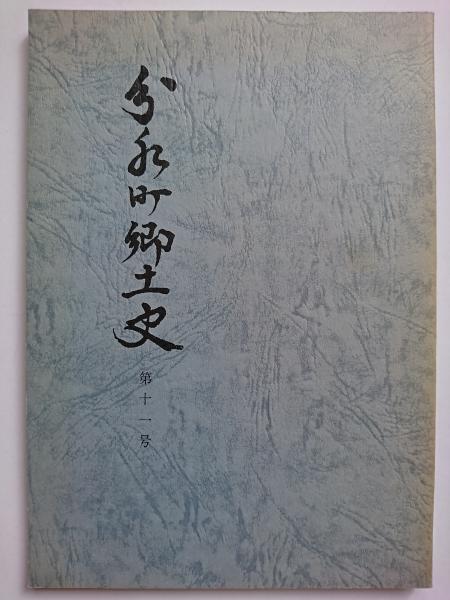 分水町郷土史
第十一号